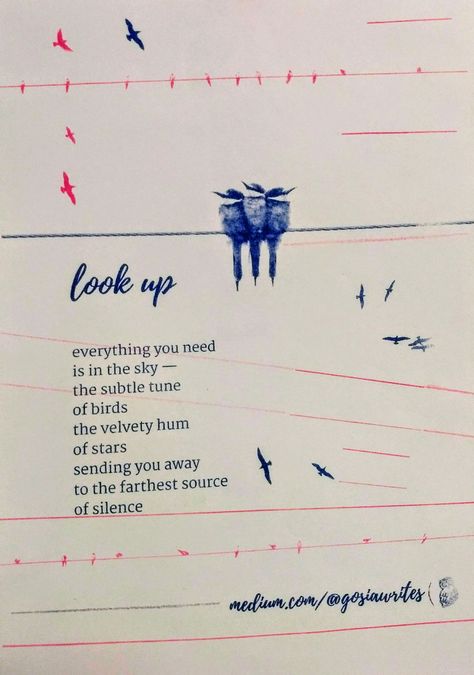 look up
everything you need
is in the sky —
the subtle tune
of birds
the velvety hum
of stars
sending you away
to the farthest source
of silence
medium.com/@gosiawrites